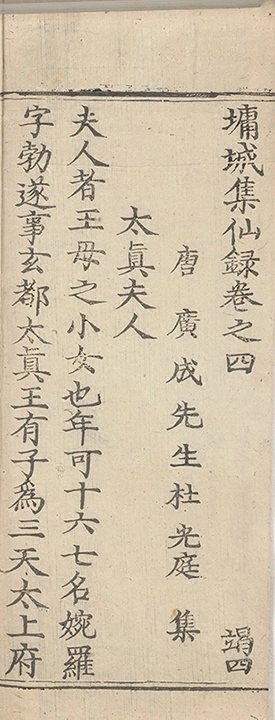 墉城集仙録卷之四 竭四
唐廣成先生杜光庭集
太眞夫人
夫人者王母之小女也年可十六七名婉羅
字勃遂事玄都太眞王有子為三天太上府